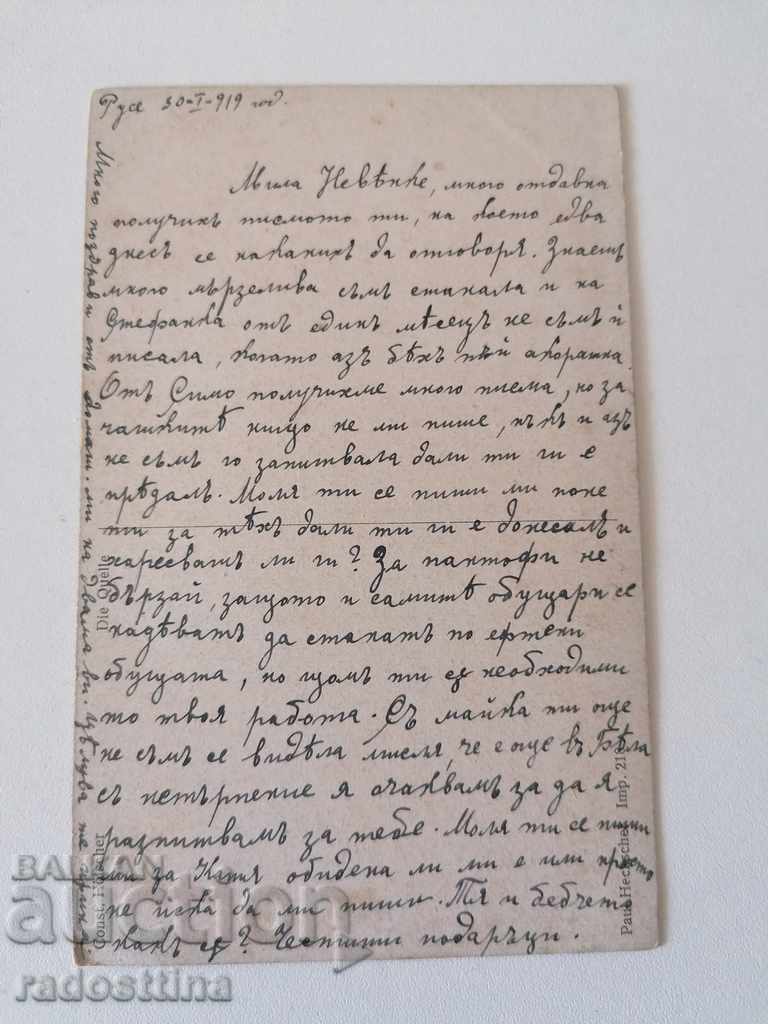 Русе 30-I-919 год.
Мила Невѣнке, много отдавна
получихъ писмото ти, на което едва
днесъ се наканихъ да отговоря. Знаешъ
много мързелива съмъ станала и на
Стефанка отъ единъ мѣсецъ не съмъ й
писала, когато азъ бѣхъ нѣй акорашка.
Отъ Симо получихме много писма, но за
чашкитѣ нищо не ми пише, пъкъ и азъ
не съмъ го запитвала дали ти ги е
прѣдалъ. Моля ти се пиши ми поне
ти за тѣхъ дали ти ги е донесалъ и
харесвашъ ли ги? За пантофи не
бързай, защото и самитѣ обущари се
надѣватъ да станатъ по ефтени
обущата, но щомъ ти са необходими
то твоя работа. Съ майка ти още
не съмъ се видѣла мисля, че е още въ Бѣла
съ нетърпение я очаквамъ за да я
разпитвамъ за тебе. Моля ти се пиши
ми за обидена ли ми е или просто
не иска да ми пиши. Тя и бебчето
какъ са? Честити подаръци.
Много поздрави отъ домаш. ми на двама ви. Цѣлува те
Die Quelle
Const.
Paul Imp. 21
BALKAN
auction
radosttina